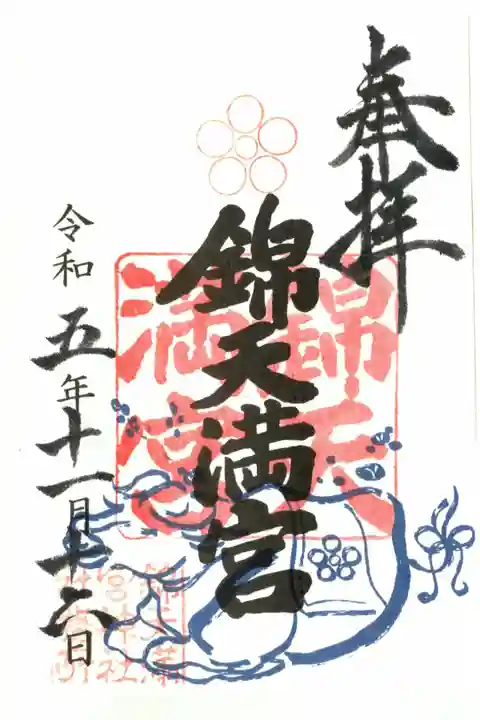 奉拝
錦天満宮
錦天満宮
令和五年十一月十六日